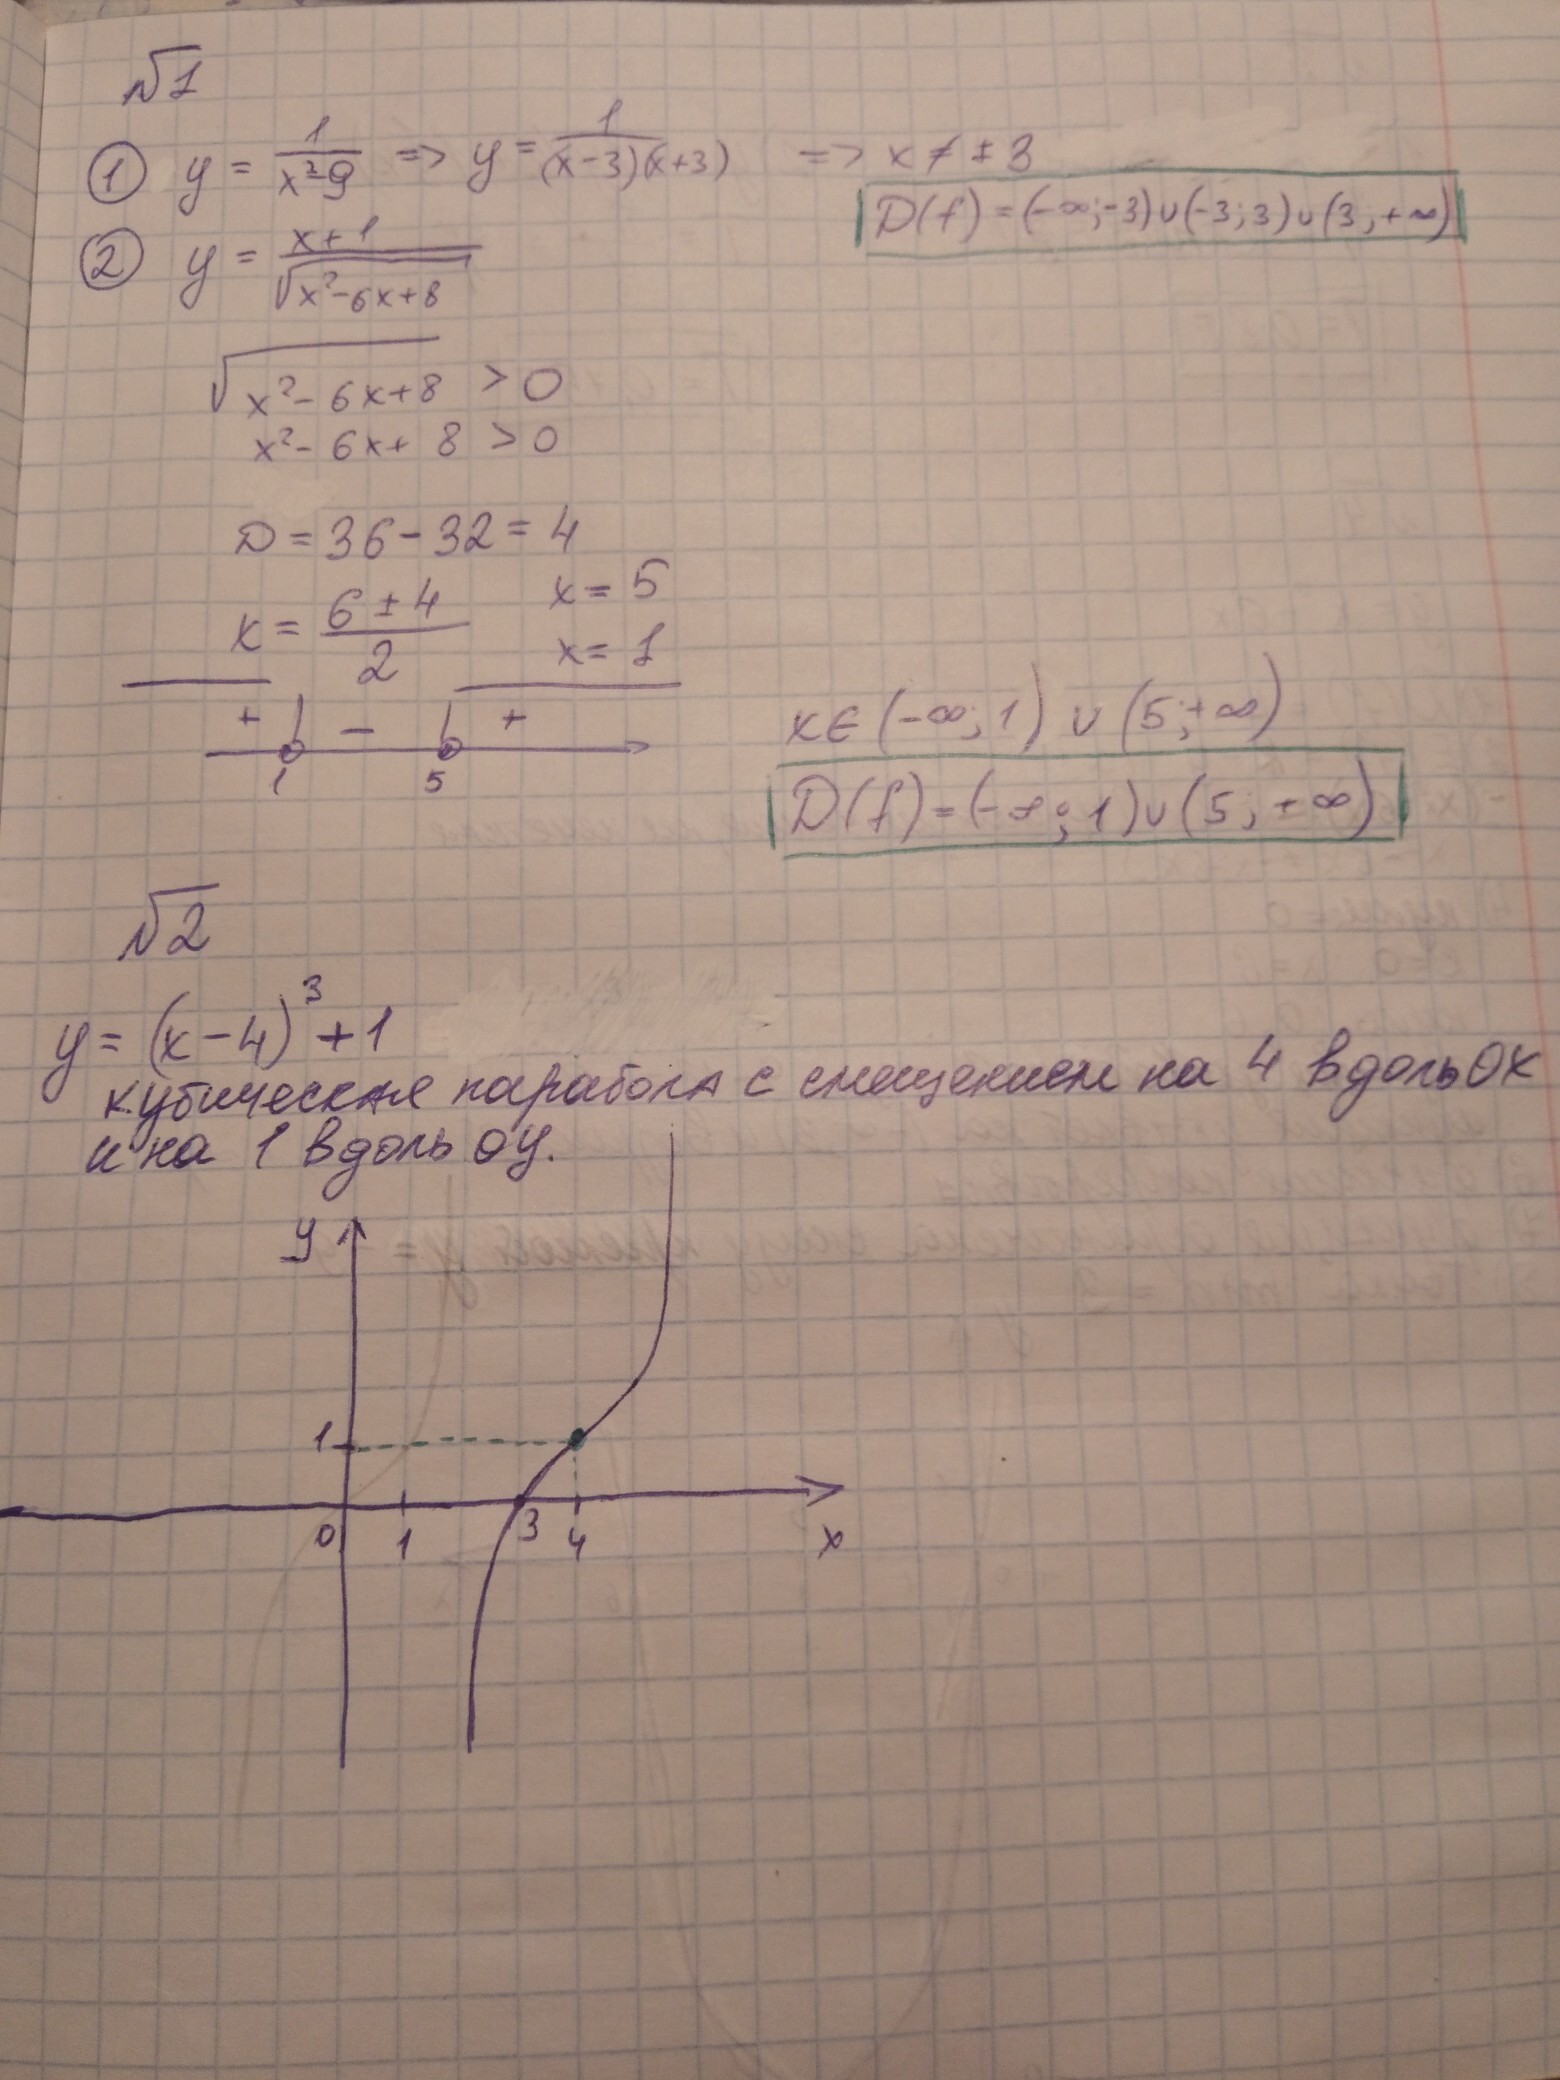 №1
① y = 1/(x²-9) => y = 1/((x-3)(x+3)) => x ≠ ±3
D(f) = (-∞;-3)∪(-3;3)∪(3;+∞)
② y = (x+1)/√(x²-6x+8)
√(x²-6x+8) > 0
x²-6x+8 > 0
D = 36-32 = 4
x = (6±4)/2 x = 5
x = 1
+ - +
1 5
x∈(-∞;1)∪(5;+∞)
D(f)=(-∞;1)∪(5;+∞)
№2
y = (x-4)³+1
кубическая парабола с смещением на 4 вдоль OX
и на 1 вдоль OY.
y
1
0 1 3 4 x